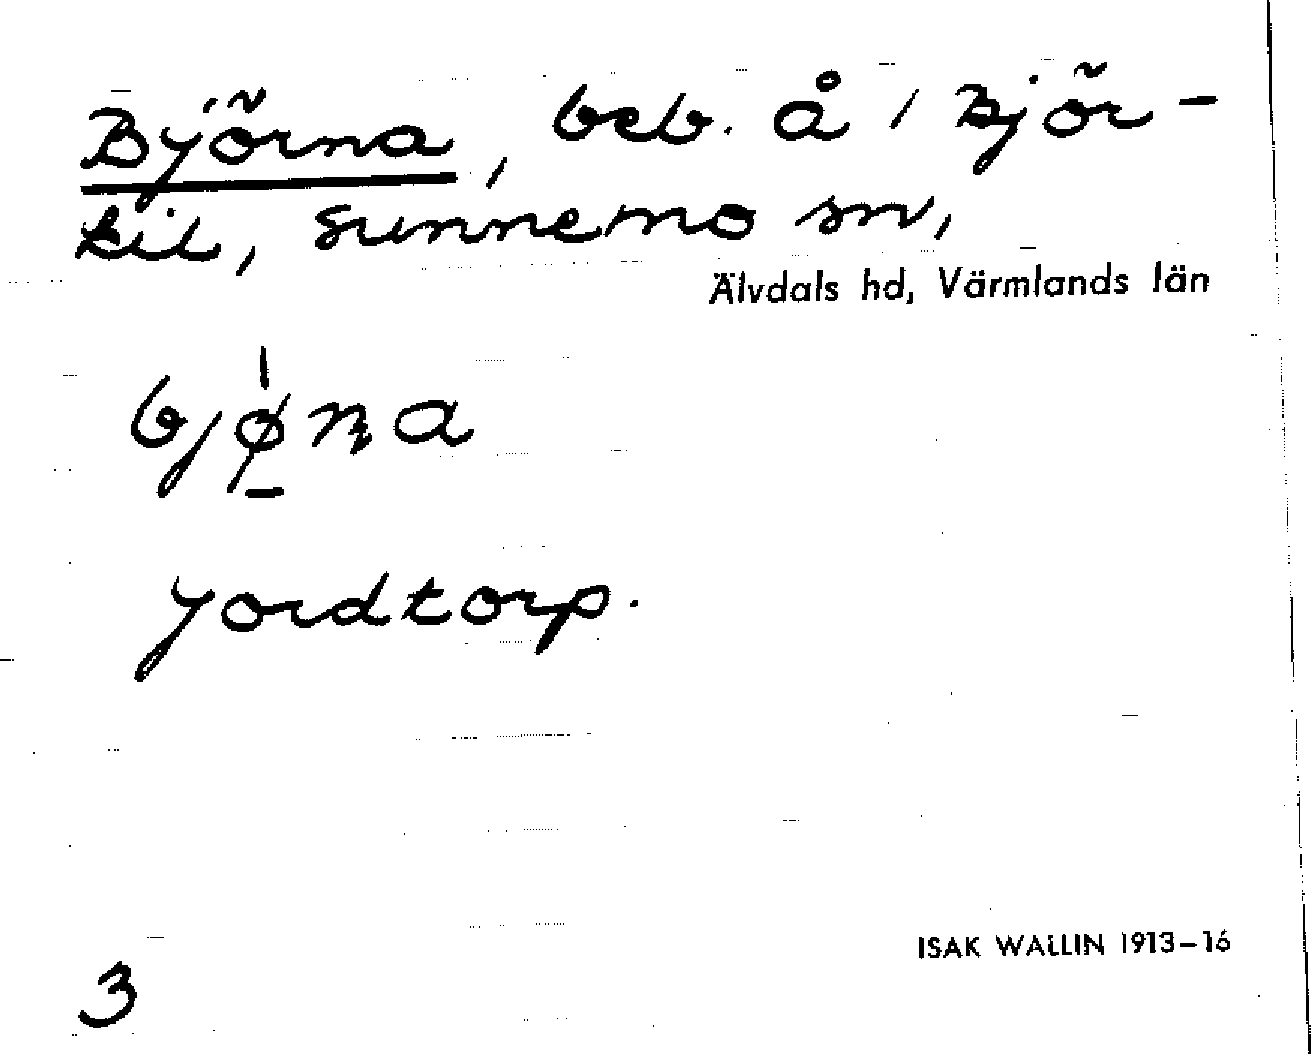 Björna, beb. å 1 Björ-
kil, Sunnemo sn,
Älvdals hd, Värmlands län
bjǿ̱ṇa
Jordtorp.
ISAK WALLIN 1913–16
3